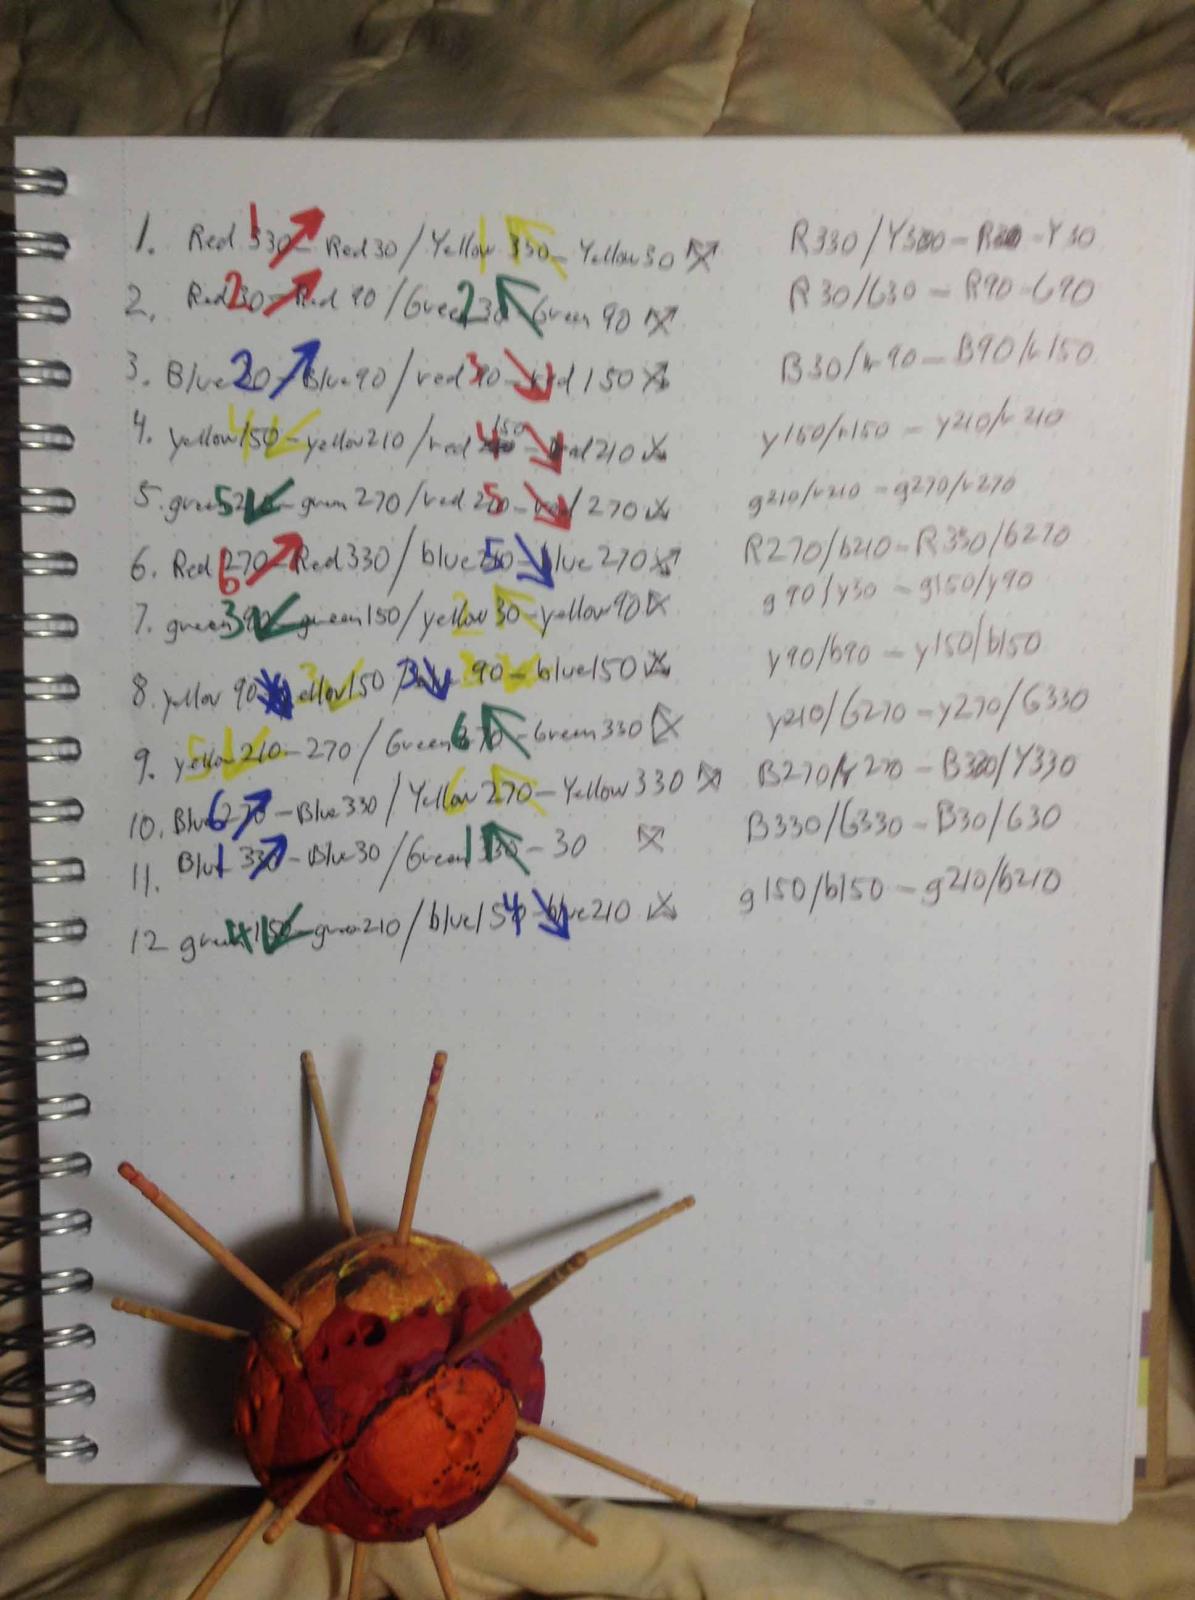 1. Red 330 – Red 30 / Yellow 330 – Yellow 30 R330/Y330 – R30 – Y30
2. Red 30 – Red 90 / Green 30 – Green 90 R30/G30 – R90 – G90
3. Blue 30 – Blue 90 / red 90 – red 150 B30/r90 – B90/r150
4. yellow 150 – yellow 210 / red 150 – red 210 y150/r150 – y210/r210
5. green 210 – green 270 / red 210 – red 270 g210/r210 – g270/r270
6. Red 270 – Red 330 / blue 210 – blue 270 R270/b210 – R330/b270
7. green 90 – green 150 / yellow 30 – yellow 90 g90/y30 – g150/y90
8. yellow 90 yellow 150 / 90 – blue 150 y90/b90 – y150/b150
9. yellow 210 – 270 / Green 270 – Green 330 y210/G270 – y270/G330
10. Blue 270 – Blue 330 / Yellow 270 – Yellow 330 B270/Y270 – B330/Y330
11. Blue 330 – Blue 30 / Green 330 – 30 B330/G330 – B30/G30
12 green 150 – green 210 / blue 150 – blue 210 g150/b150 – g210/b210